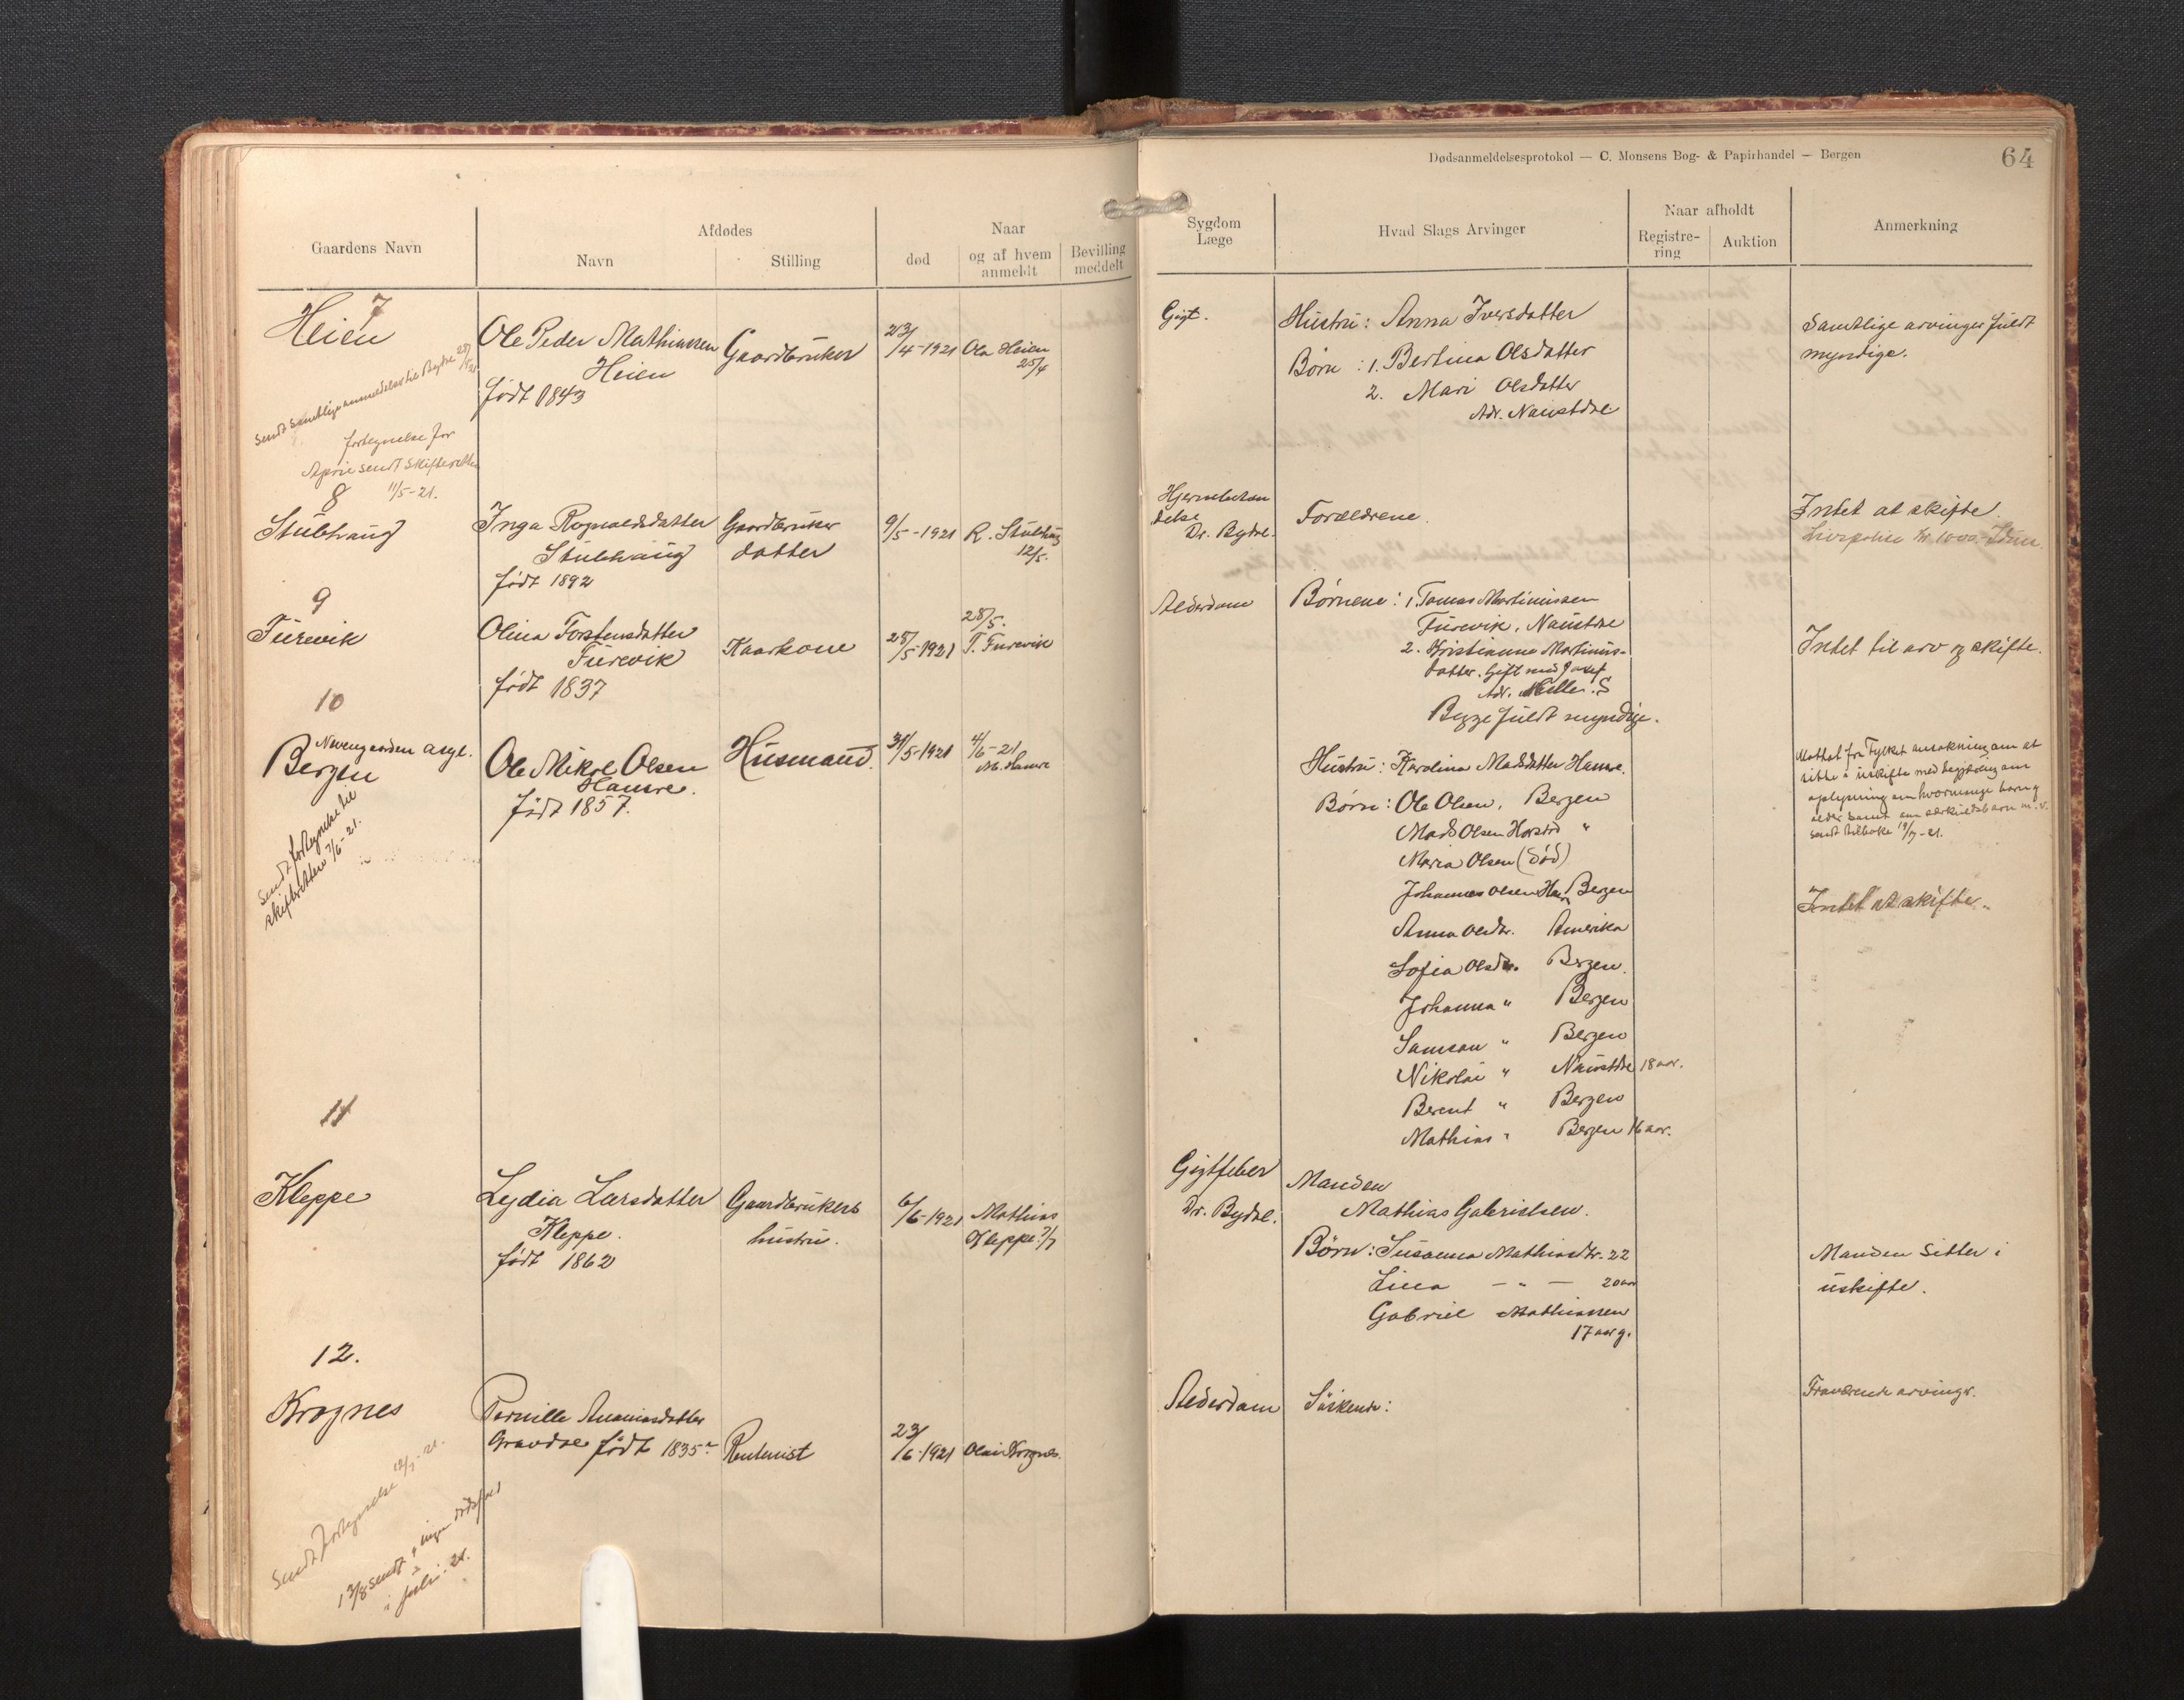 Dødsanmeldelsesprotokol — C. Monsens Bog- & Papirhandel — Bergen
64
Gaardens Navn
Afdødes
Navn
Stilling
Naar
død
og af hvem
anmeldt
Bevilling
meddelt
Sygdom
Læge
Hvad Slags Arvinger
Naar afholdt
Registre-
ring
Auktion
Anmerkning
7
Heien
Ole Peder Mathiassen
Heien
født 1843
Gaardbruker
23/4-1921
Ola Heien
25/4
Gigt.
Hustru: Anna Iversdatter
Børn: 1. Bertina Olsdatter
2. Mari Olsdatter
Adr. Naustdal
Samtlige arvinger fuldt
myndige.
Sendt samtlige anmeldelser til Bydal
fortegnelse for
April sendt Skifteretten
11/5-21.
8
Stubhaug
Inga Ragnvaldsdatter
Stubhaug
født 1892
Gaardbruker
datter
9/5-1921
R. Stubhaug
12/5.
Dr. Bydal.
Forældrene.
Intet at skifte.
Livspolise kr. 1000.- Idun.
9
Furevik
Olina Torstensdatter
Furevik
født 1837
Kaarkone
25/5-1921
28/5.
T. Furevik
Alderdom
Børnene: 1. Tomas Martinussen
Furevik, Naustdal
2. Kristianna Martinus-
datter. Gift med Josef
Adr.
Begge fuldt myndige.
Intet til arv og skifte.
10
Nevengaarden asyl.
Bergen
Ole Mikal Olsen
Hamre.
født 1857.
Husmand.
31/5-1921
4/6-21
M. Hamre
Hustru: Karolina Madsdatter Hamre.
Børn: Ole Olsen, Bergen
Mads Olsen "
Maria Olsen (død)
Johannes Olsen Bergen
Anna Olsdtr. Amerika
Sofia Olsdtr. Bergen.
Johanna " Bergen
Samson " Bergen
Nikolai " Naustdal 18 aar.
Berent " Bergen
Mathias " Bergen 16 aar.
Mottat fra Fylket ansøkning om at
sitte i uskifte med begjæring om
oplysning om hvormange barn og
alder samt om særkuldsbarn m. v.
sendt tilbake 19/7-21.
Intet at skifte.
Sendt fortegnelse til
skifteretten 7/6-21.
11
Kleppe
Lydia Larsdatter
Kleppe.
født 1862
Gaardbrukers
hustru.
6/6-1921
Mathias
Kleppe 7/7
Gigtfeber
Dr. Bydal.
Manden
Mathias Gabrielsen.
Børn: Susanna Mathiasdtr. 22
Lina — " — 20 aar
Gabriel Mathiassen
17 aar g.
Manden sitter i
uskifte.
12.
Krognes
Pernille Ananiasdatter
Gravdal født 1835
Rentenist
23/6-1921
Olai Krognes.
Alderdom
Søskende:
Fraværende arving.
Sendt fortegnelse 12/7-21.
13/8 sendt ingen dødsfald
i juli: 21.